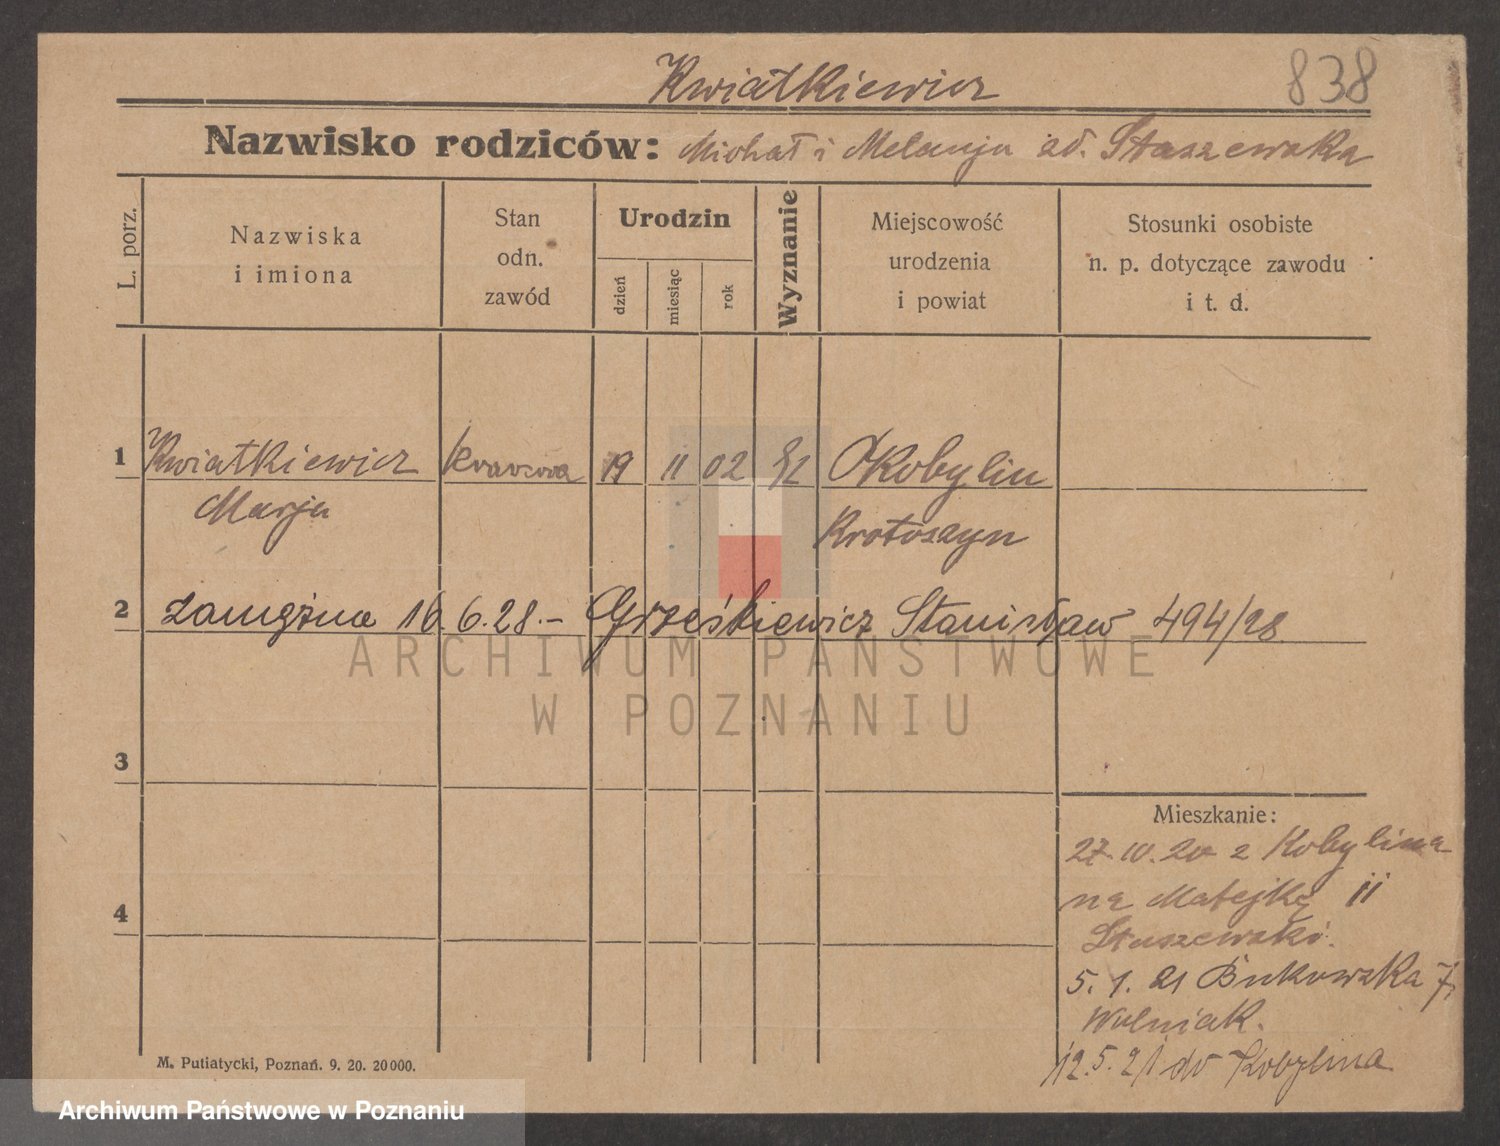 Kwiatkiewicz
838
Nazwisko rodziców: Michał i Melanja zd. Staszewska
L. porz.
Nazwiska
i imiona
Stan
odn.
zawód
Urodzin
dzień
miesiąc
rok
Wyznanie
Miejscowość
urodzenia
i powiat
Stosunki osobiste
n. p. dotyczące zawodu
i t. d.
1 Kwiatkiewicz krawcowa 19 11 02 Kobylin
Marja Krotoszyn
2 zamężna 16.6.28.- Grześkiewicz Stanisław 494/28
ARCHIWUM PAŃSTWOWE
W POZNANIU
3
Mieszkanie:
27.IV.20 z Kobylina
na Matejkę 11
Staszewski.
5.1.21 Bukowska 7,
Wolniak.
12.5.21 do Kobylina
4
M. Putiatycki, Poznań. 9. 20. 20000.
Archiwum Państwowe w Poznaniu